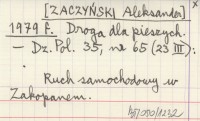 [ZACZYŃSKI Aleksander]
1979 r. Droga dla pieszych.
– Dz. Pol. 35, nr 65 (23 III).
Ruch samochodowy w
Zakopanem.